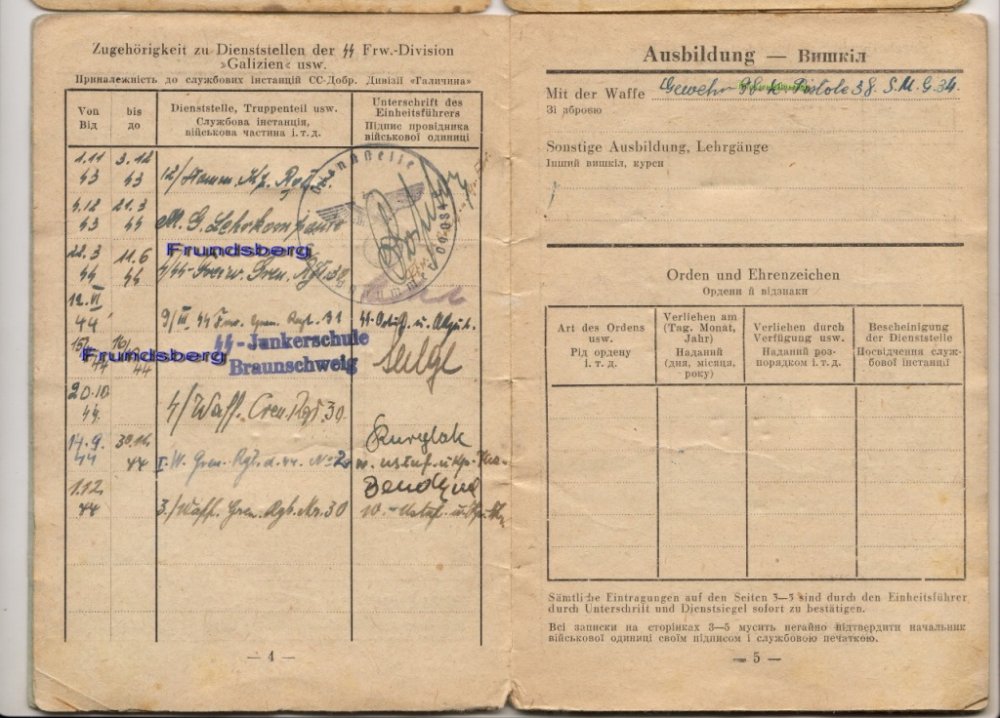 Zugehörigkeit zu Dienststellen der ᛋᛋ Frw.-Division
»Galizien« usw.
Приналежність до службових інстанцій СС-Добр. Дивізії «Галичина»
Von
Від
bis
до
Dienststelle, Truppenteil usw.
Службова інстанція,
військова частина і. т. д.
Unterschrift des
Einheitsführers
Підпис провідника
військової одиниці
1.11 43
3.12 43
4.12 43
21.3 44
M.G. Lehrkompanie
Frundsberg
22.3 44
11.6 44
12. VI 44
Frundsberg
ᛋᛋ-Junkerschule
Braunschweig
20.10. 44
4/Waff. Gren. Rgt. 30.
14.9. 44
1.12 44
3./Waff. Gren. Rgt. Nr. 30
— 4 —
Ausbildung — Вишкіл
Mit der Waffe Gewehr 98 k Pistole 38. S.M.G. 34.
Зі зброєю
Sonstige Ausbildung, Lehrgänge
Інший вишкіл, курси
Orden und Ehrenzeichen
Ордени й відзнаки
Art des Ordens
usw.
Рід ордену
і. т. д.
Verliehen am
(Tag. Monat,
Jahr)
Наданий
(дня, місяця,
року)
Verliehen durch
Verfügung usw.
Наданий роз-
порядком і. т. д.
Bescheinigung
der Dienststelle
Посвідчення служ-
бової інстанції
Sämtliche Eintragungen auf den Seiten 3—5 sind durch den Einheitsführer
durch Unterschrift und Dienstsiegel sofort zu bestätigen.
Всі записки на сторінках 3—5 мусить негайно підтвердити начальник
військової одиниці своїм підписом і службовою печаткою.
— 5 —